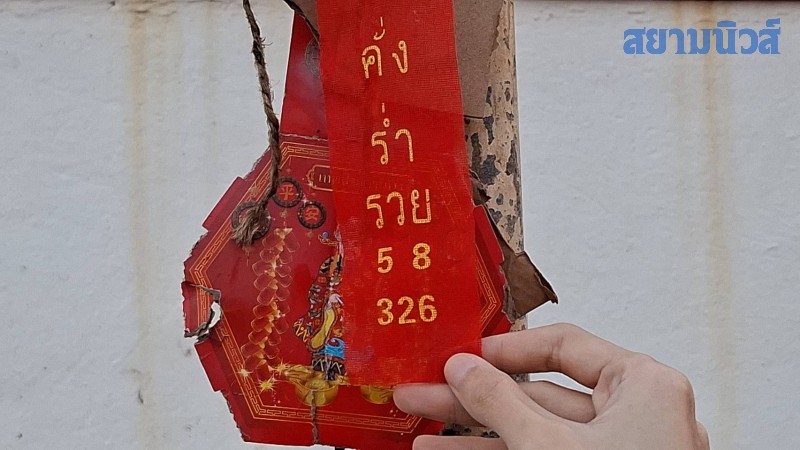 สยามนิวส์
คั่ง
ร่ำ
รวย
5 8
326
平
安